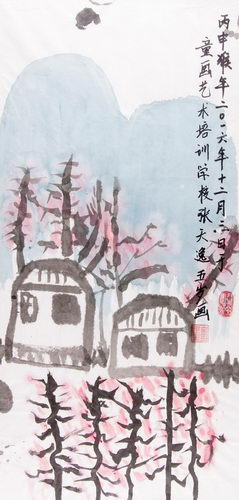 丙申猴年二〇一六年十二月二日于
童画艺术培训学校张天逸五岁画